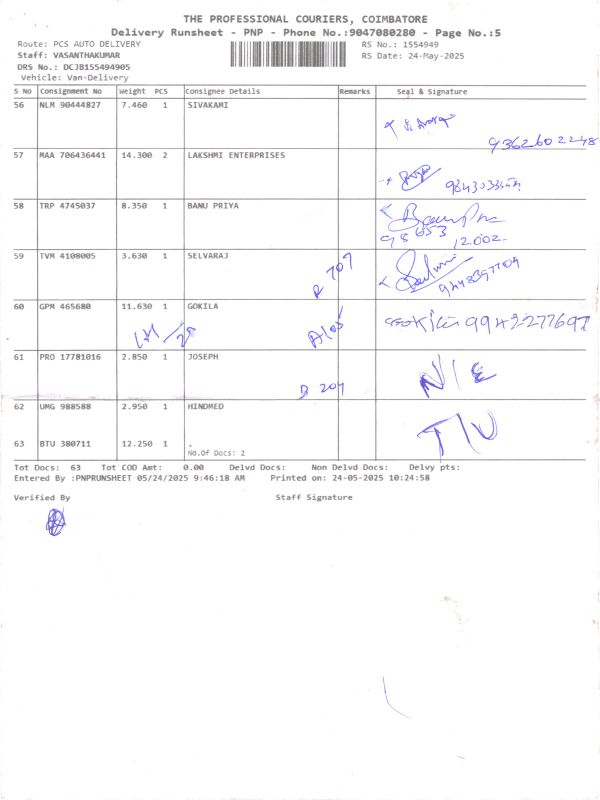 THE PROFESSIONAL COURIERS, COIMBATORE
Delivery Runsheet - PNP - Phone No.:9047080280 - Page No.:5
Route: PCS AUTO DELIVERY RS No.: 1554949
Staff: VASANTHAKUMAR RS Date: 24-May-2025
DRS No.: DCJB155494905
Vehicle: Van-Delivery
S No Consignment No Weight PCS Consignee Details Remarks Seal & Signature
56 NLM 90444827 7.460 1 SIVAKAMI
9362602248
57 MAA 706436441 14.300 2 LAKSHMI ENTERPRISES
58 TRP 4745037 8.350 1 BANU PRIYA
98653
12002
59 TVM 4108005 3.630 1 SELVARAJ
R 707
60 GPM 465680 11.630 1 GOKILA
Gokila 9942277697
61 PRO 17781016 2.850 1 JOSEPH
B 204
N/E
62 UMG 988588 2.950 1 HINDMED
T/U
63 BTU 380711 12.250 1 .
No.Of Docs: 2
Tot Docs: 63 Tot COD Amt: 0.00 Delvd Docs: Non Delvd Docs: Delvy pts:
Entered By :PNPRUNSHEET 05/24/2025 9:46:18 AM Printed on: 24-05-2025 10:24:58
Verified By Staff Signature